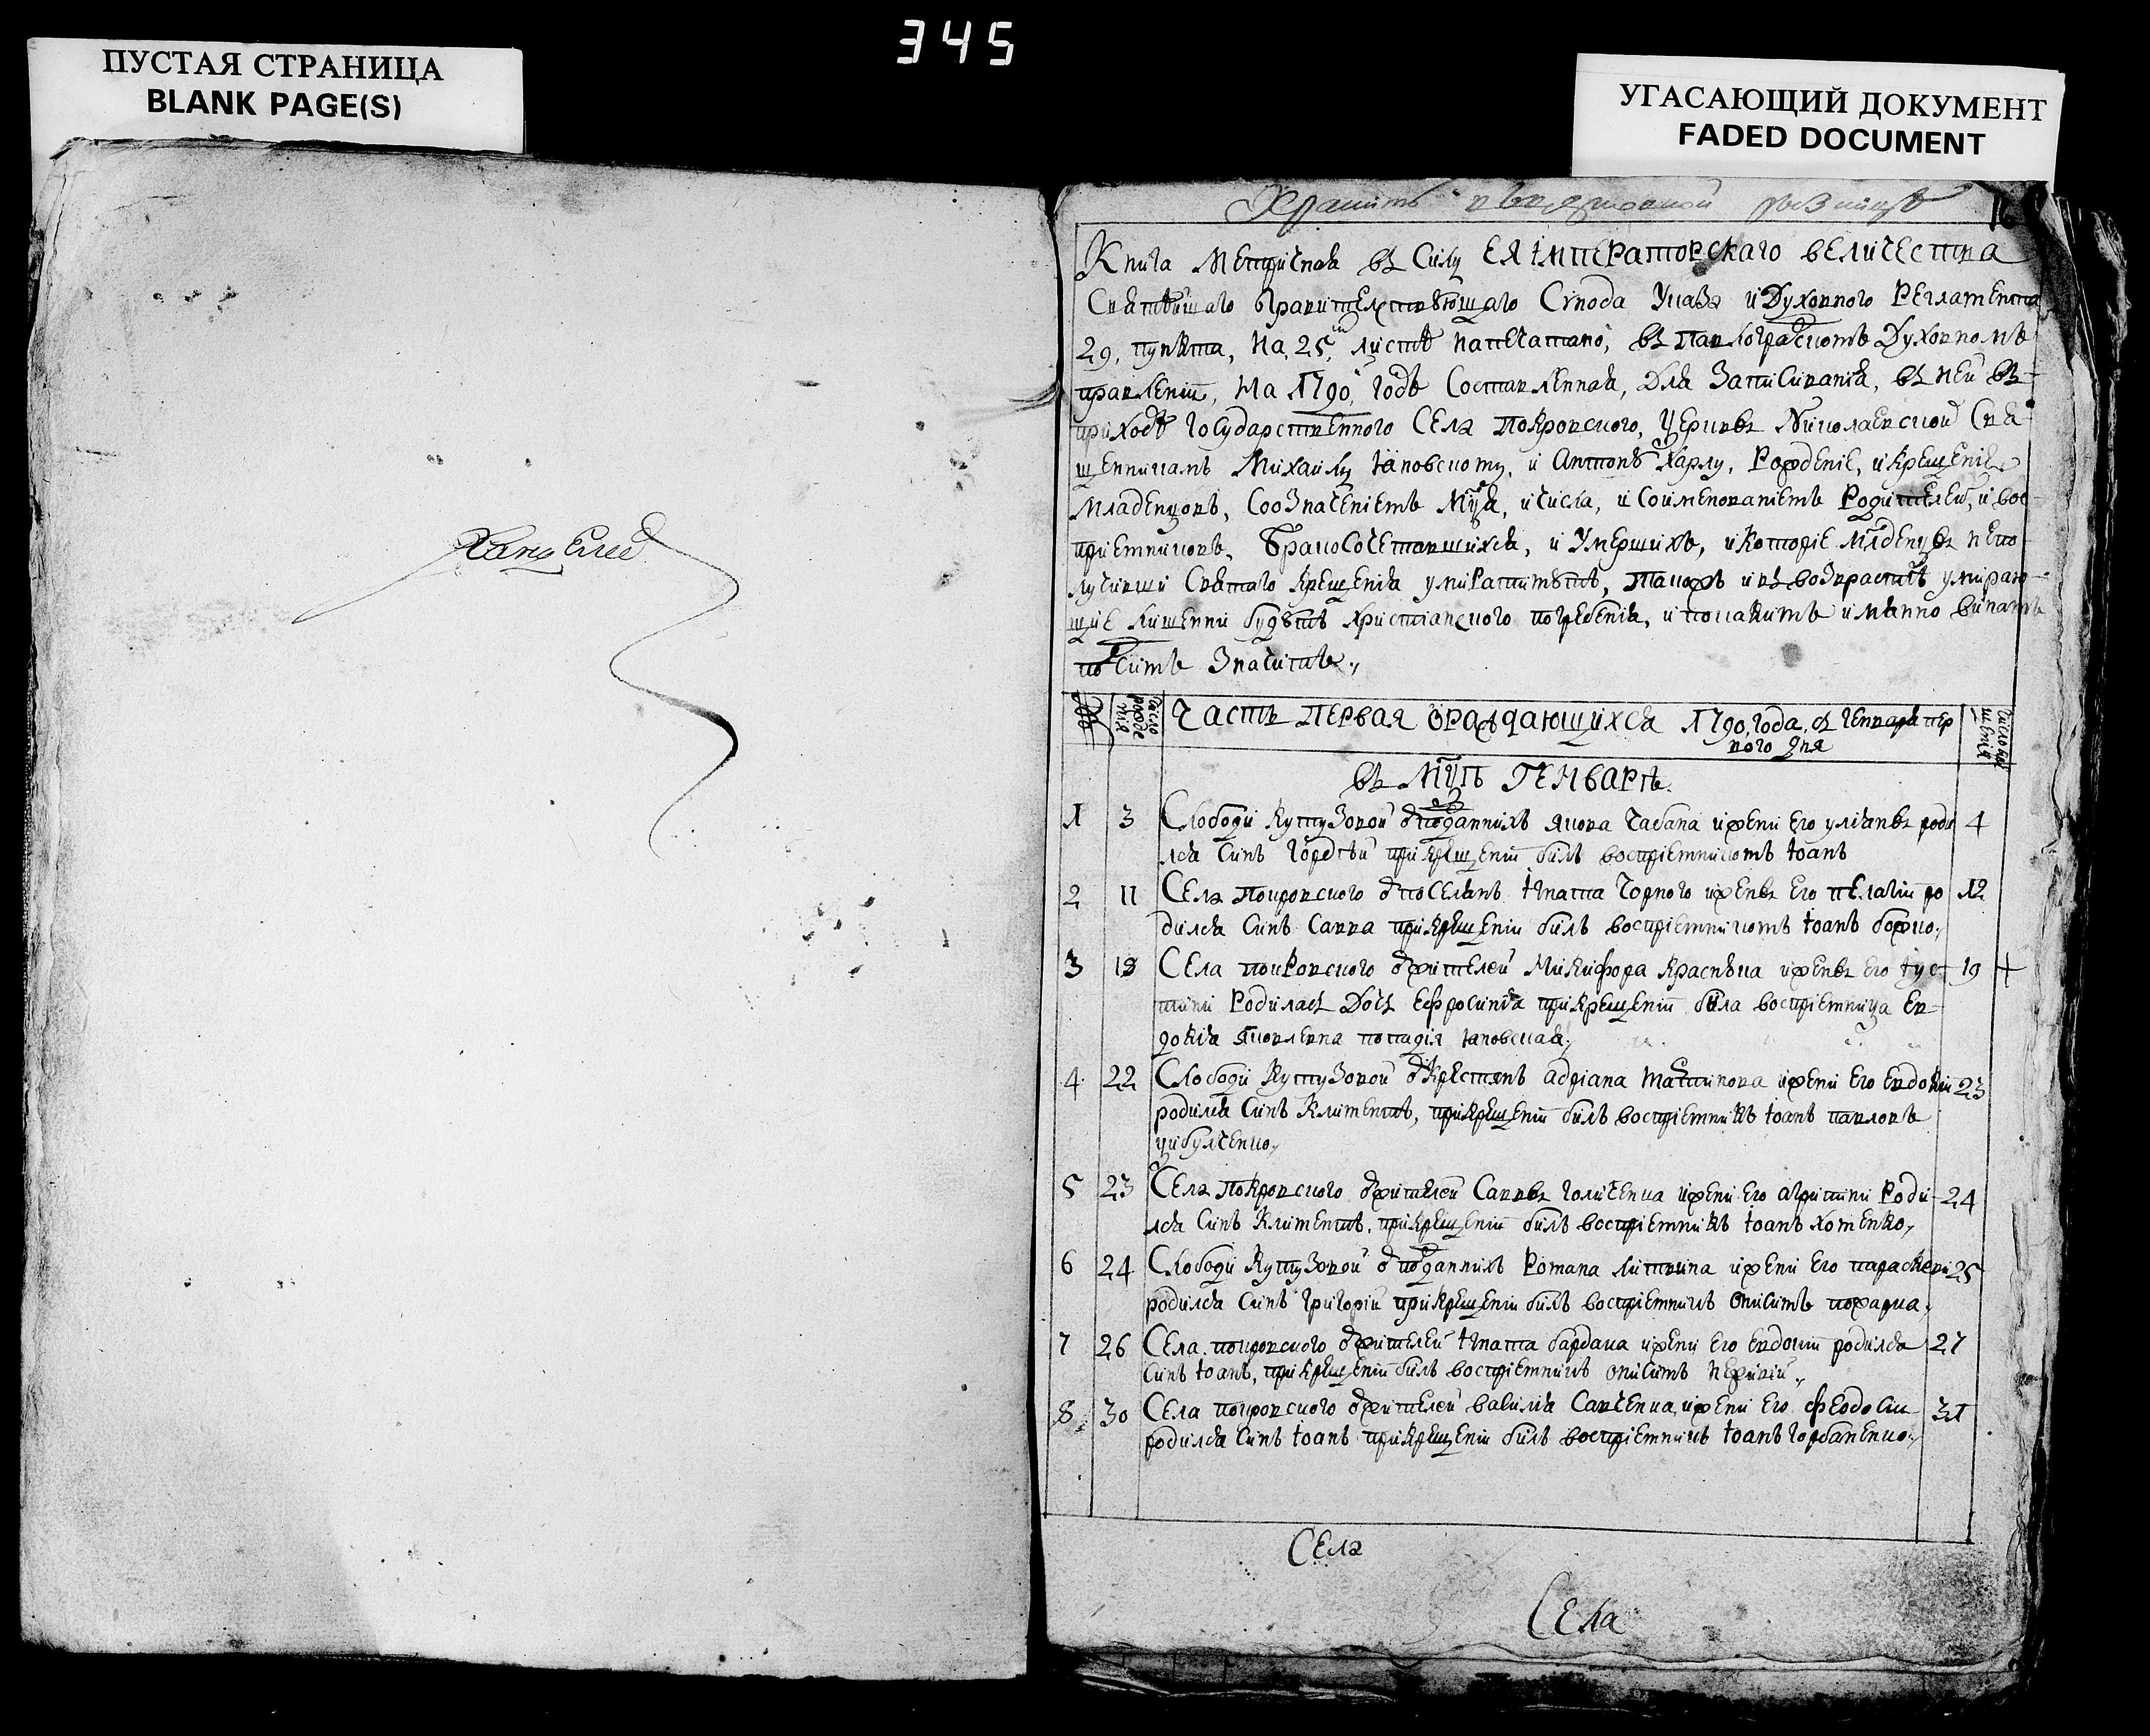 345
ПУСТАЯ СТРАНИЦА
BLANK PAGE(S)
УГАСАЮЩИЙ ДОКУМЕНТ
FADED DOCUMENT
Хранить
16
Книга Метричная въ Силу ЕЯ ІМПЕРаторскаго вЕЛичЕства
Святѣйшаго Правителствующаго Сѵнода Указа и Духовного Регламента
29, пункта, На, 25, листѣ напечатано, въ Павлоградскомъ Духовномъ
правленіи, На 1790, годъ Составленная, Для Записиванія, въ ней въ
приходѣ Государственного Села Покровского, Церквѣ Николаевской Свя-
щенникамъ Михайлу Яновскому, и Антонѣ Харлу, Рожденіе, и крещеніе
Младенцовъ, Сообзначеніемъ Мца, и Числа, и Соименованіемъ Родителей, и вос-
пріемниковъ, Бракосочетавшихся, и Умершихъ, и Которіе Младенцѣ непо-
лучивши Святаго крещенія умирать имѣютъ, Такожъ и въ возрастѣ умираю-
щіе лишенни будутъ христіанского погребенія, и покакимъ имянно винамъ
посимъ Значитъ.
Число рожденія
Часть ПЕРвая ѡраждающихся 1790, года, съ генваря пер
вого дня
Число крещенія
въ МЦѢ ГЕНваРѢ.
1 3 Слободи Кутузовой ѿ подданнихъ Якова Чабана и жени Его уліанѣ роди 4
лся Синъ Гордѣй при крещеніи билъ воспріемникомъ Іоанъ
2 11 Села Покровского ѿ поселянъ Игната Чорного и женѣ Его пелагіи ро 12
дился Синъ Савва при крещеніи билъ воспріемникомъ Іоанъ божко.
3 18 Села покровского ѿ жителей Микифора Краснѣка и женѣ Его Іус- 19 +
тини Родилась Дочь Ефросинія при крещеніи била воспріемница Ев-
докія Яковлевна попадія Яновская.
4 22 Слободи Кутузовой ѿ крестянъ адріана Мартинова и жени Его Евдокіи 23
родился Синъ Климентъ, при крещеніи билъ воспріемникъ Іоанъ павловъ
цибулченко.
5 23 Села покровского ѿ жителей Саввѣ голиченка и жени Его агрипини Роди- 24
лся Синъ Климентъ, при крещеніи билъ воспріемникъ Іоанъ хоменко.
6 24 Слободи Кутузовой ѿ подданнихъ Романа литвина и жени Его параскеви 25
родился Синъ григорій при крещеніи билъ воспріемникъ Онисимъ
7 26 Села покровского ѿ жителей Игната бардака и жени Его Евдокіи родился 27
Синъ Іоанъ, при крещеніи билъ воспріемникъ Онисимъ
8 30 Села покровского ѿ жителей василія Савченка, и жени Его феодосіи 31
родился Синъ Іоанъ при крещеніи билъ воспріемникъ Іоанъ горбаненко.
Села
Села